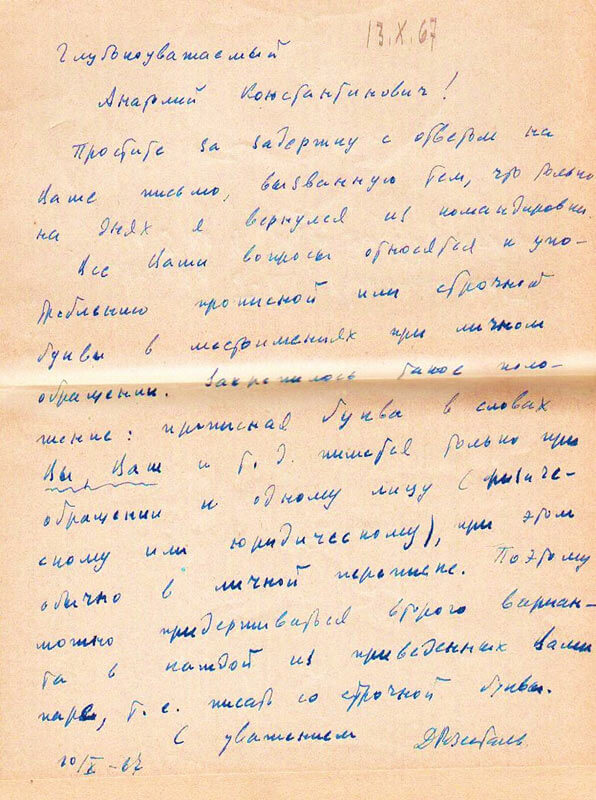 13.X.67
Глубокоуважаемый
Анатолий Константинович!
Простите за задержку с ответом на
Ваше письмо, вызванную тем, что только
на днях я вернулся из командировки.
Все Ваши вопросы относятся к упо-
треблению прописной или строчной
буквы в местоимениях при личном
обращении. Закрепилось такое поло-
жение: прописная буква в словах
Вы, Ваш и т. д. пишется только при
обращении к одному лицу (физиче-
скому или юридическому), при этом
обычно в личной переписке. Поэтому
можно придерживаться второго вариан-
та в каждой из приведенных Вами
пар, т. е. писать со строчной буквы.
С уважением ДРозенталь
10/X-67